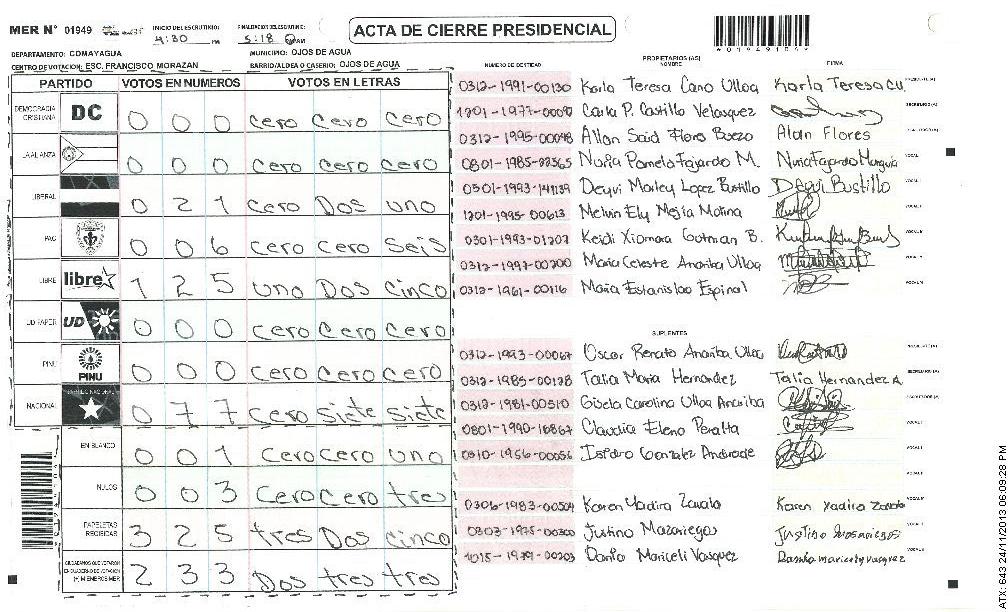 MER N° 01949
INICIO DEL ESCRUTINIO: 4:30 PM
FINALIZACION DEL ESCRUTINIO: 5:18 PM
ACTA DE CIERRE PRESIDENCIAL
DEPARTAMENTO: COMAYAGUA
MUNICIPIO: OJOS DE AGUA
CENTRO DE VOTACION: ESC. FRANCISCO MORAZAN
BARRIO/ALDEA O CASERIO: OJOS DE AGUA
PARTIDO VOTOS EN NUMEROS VOTOS EN LETRAS
DEMOCRACIA CRISTIANA DC 0 0 0 cero cero cero
LA ALIANZA 0 0 0 cero cero cero
LIBERAL 0 2 1 cero Dos uno
PAC 0 0 6 cero cero seis
LIBRE libre 1 2 5 uno Dos cinco
UD FAPER UD 0 0 0 cero cero cero
PINU PINU 0 0 0 cero cero cero
NACIONAL 0 7 7 cero siete siete
EN BLANCO 0 0 1 cero cero uno
NULOS 0 0 3 cero cero tres
PAPELETAS RECIBIDAS 3 2 5 tres Dos cinco
CIUDADANOS QUE VOTARON EN CUADERNO DE VOTACION (+) MIEMBROS MER 2 3 3 Dos tres tres
PROPIETARIOS (AS)
NUMERO DE IDENTIDAD NOMBRE FIRMA
0312-1991-00130 Karla Teresa Cano Ulloa Karla Teresa C U.
Carla P. Castillo Velasquez
0312-1995-00098 Allan Said Flores Alan Flores
Nuria Pamela Fajardo M. Nuria Fajardo
Deyvi Lopez Bustillo Bustillo
1201-1995-00613 Melvin Ely Mejia Molina
0301-1993-01207 Keidi Xiomara Gutman B.
0312-1997-00200 Maria Celeste Anariba Ulloa
0312-1961-00116 Maria Estanislao Espinal
SUPLENTES
0312-1993-00067 Oscar Renato Anariba Ulloa
0312-1985-00128 Talia Maria Hernandez Talia Hernandez A
0312-1981-00510 Gisela Carolina Ulloa Anariba
0801-1990-10867 Claudia Elena Peralta
Isidro Gonzalez Andrade
0306-1983-00504 Karen Yadira Zavala Karen Yadira Zavala
0803-1975-00300 Justino Mazariegos Justino
Mariceli Vasquez
ATX: 643 24/11/2013 06:09:28 PM